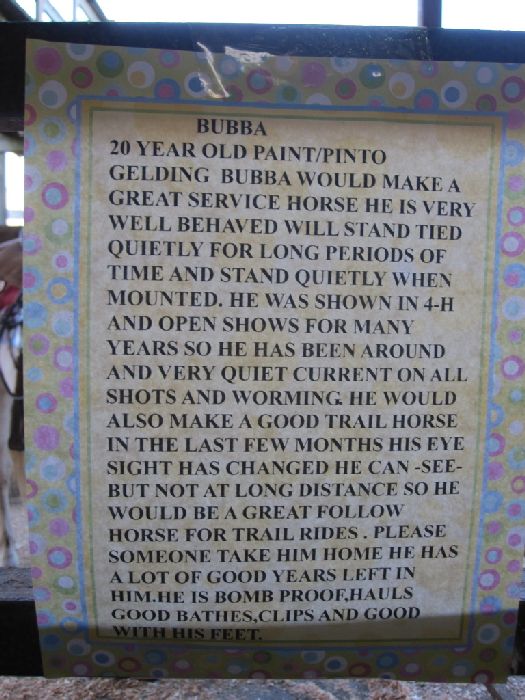 BUBBA
20 YEAR OLD PAINT/PINTO
GELDING BUBBA WOULD MAKE A
GREAT SERVICE HORSE HE IS VERY
WELL BEHAVED WILL STAND TIED
QUIETLY FOR LONG PERIODS OF
TIME AND STAND QUIETLY WHEN
MOUNTED. HE WAS SHOWN IN 4-H
AND OPEN SHOWS FOR MANY
YEARS SO HE HAS BEEN AROUND
AND VERY QUIET CURRENT ON ALL
SHOTS AND WORMING. HE WOULD
ALSO MAKE A GOOD TRAIL HORSE
IN THE LAST FEW MONTHS HIS EYE
SIGHT HAS CHANGED HE CAN -SEE-
BUT NOT AT LONG DISTANCE SO HE
WOULD BE A GREAT FOLLOW
HORSE FOR TRAIL RIDES . PLEASE
SOMEONE TAKE HIM HOME HE HAS
A LOT OF GOOD YEARS LEFT IN
HIM.HE IS BOMB PROOF,HAULS
GOOD BATHES,CLIPS AND GOOD
WITH HIS FEET.